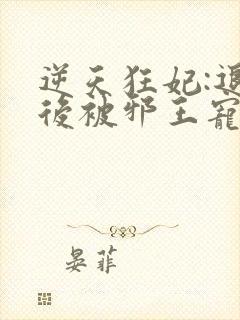 逆天狂妃:退
後被邪王寵
晏菲